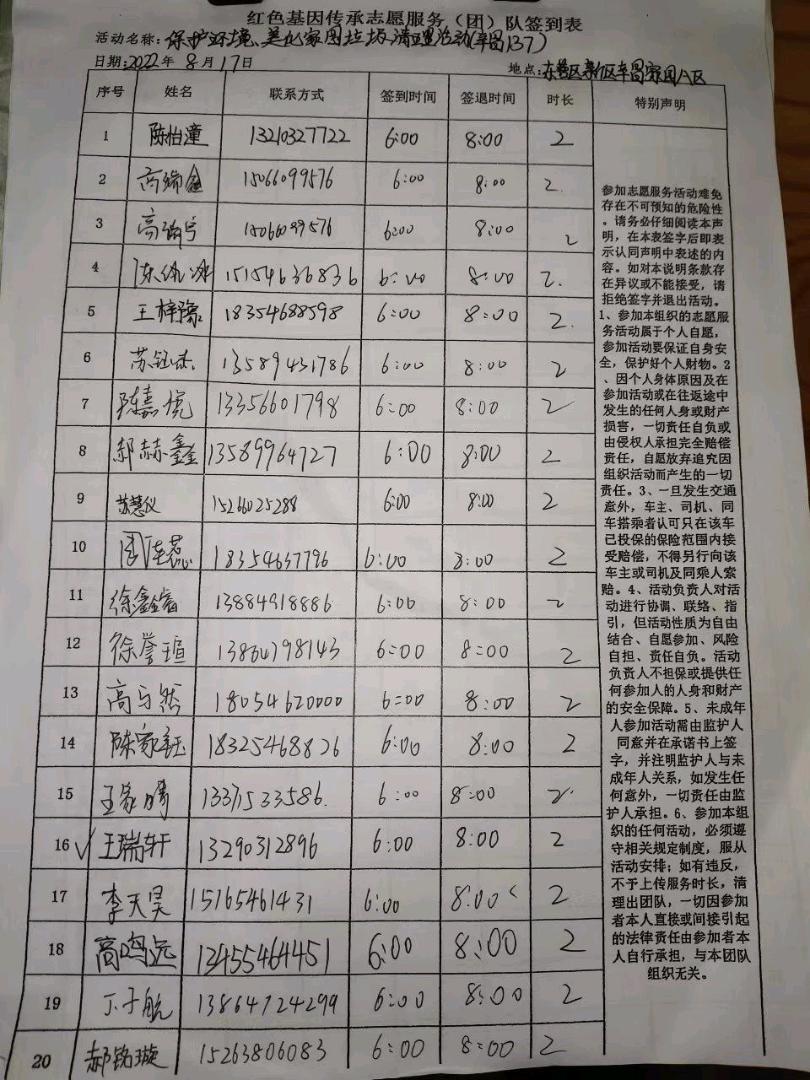 红色基因传承志愿服务（团）队签到表
活动名称：保护环境、美化家园垃圾清理活动(辛留137)
日期：2022年8月17日 地点：东营区新区辛留家园A区
序号 姓名 联系方式 签到时间 签退时间 时长 特别声明
1 陈怡潼 13210327722 6:00 8:00 2
2 高瑞鑫 15066099576 6:00 8:00 2.
3 高瑞宁 15066099576 6:00 8:00 2
4 15154636836 6:00 8:00 2.
5 王梓豫 18354688598 6:00 8:00 2.
6 苏钰杰 13589431786 6:00 8:00 2
7 陈嘉悦 13356601798 6:00 8:00 2
8 郝赫鑫 13589964727 6:00 8:00 2
9 苏慧仪 15266025288 6:00 8:00 2
10 周佳蕊 18354637796 6:00 8:00 2
11 徐鑫睿 13884918886 6:00 8:00 2
12 徐誉瑄 13864798143 6:00 8:00 2
13 高与然 18054620000 6:00 8:00 2
14 陈家钰 18325468826 6:00 8:00 2
15 王家腾 13371533586. 6:00 8:00 2.
16 √ 王瑞轩 13290312896 6:00 8:00 2
17 李天昊 15165461431 6:00 8:00 2
18 高鸣远 13455464451 6:00 8:00 2
19 丁子航 13864724299 6:00 8:00 2
20 郝铭璇 15263806083 6:00 8:00 2
参加志愿服务活动难免
存在不可预知的危险性
。请务必仔细阅读本声
明，在本表签字后即表
示认同声明中表述的内
容。如对本说明条款存
在异议或不能接受，请
拒绝签字并退出活动。
1、参加本组织的志愿服
务活动属于个人自愿，
参加活动要保证自身安
全，保护好个人财物。2
、因个人身体原因及在
参加活动或在往返途中
发生的任何人身或财产
损害，一切责任自负或
由侵权人承担完全赔偿
责任，自愿放弃追究因
组织活动而产生的一切
责任。3、一旦发生交通
意外，车主、司机、同
车搭乘者认可只在该车
已投保的保险范围内接
受赔偿，不得另行向该
车主或司机及同乘人索
赔。4、活动负责人对活
动进行协调、联络、指
引，但活动性质为自由
结合、自愿参加、风险
自担、责任自负。活动
负责人不担保或提供任
何参加人的人身和财产
的安全保障。5、未成年
人参加活动需由监护人
同意并在承诺书上签
字，并注明监护人与未
成年人关系，如发生任
何意外，一切责任由监
护人承担。6、参加本组
织的任何活动，必须遵
守相关规定制度，服从
活动安排；如有违反，
不予上传服务时长，清
理出团队，一切因参加
者本人直接或间接引起
的法律责任由参加者本
人自行承担，与本团队
组织无关。